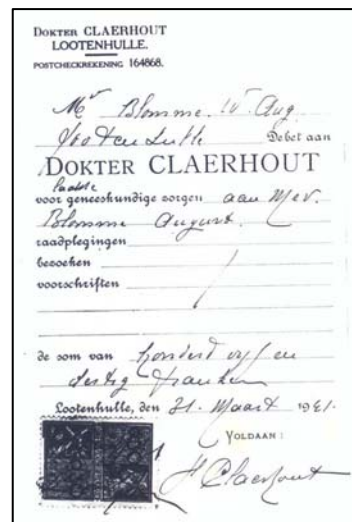 DOKTER CLAERHOUT
LOOTENHULLE.
POSTCHECKREKENING 164868.
Mr Blomme Aug
Lootenhulle Debet aan
DOKTER CLAERHOUT
laatste
voor geneeskundige zorgen aan Mev.
Blomme August.
raadplegingen
bezoeken
voorschriften
de som van honderd vijf en
dertig franken
Lootenhulle, den 31. Maart 1941.
VOLDAAN :
Claerhout